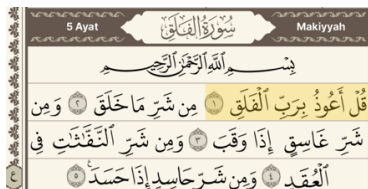 5 Ayat سُورَةُ الْفَلَقِ Makiyyah
بِسْمِ اللَّهِ الرَّحْمَٰنِ الرَّحِيمِ
قُلْ أَعُوذُ بِرَبِّ الْفَلَقِ ١ مِن شَرِّ مَا خَلَقَ ٢ وَمِن
شَرِّ غَاسِقٍ إِذَا وَقَبَ ٣ وَمِن شَرِّ النَّفَّٰثَٰتِ فِي
الْعُقَدِ ٤ وَمِن شَرِّ حَاسِدٍ إِذَا حَسَدَ ٥
ع